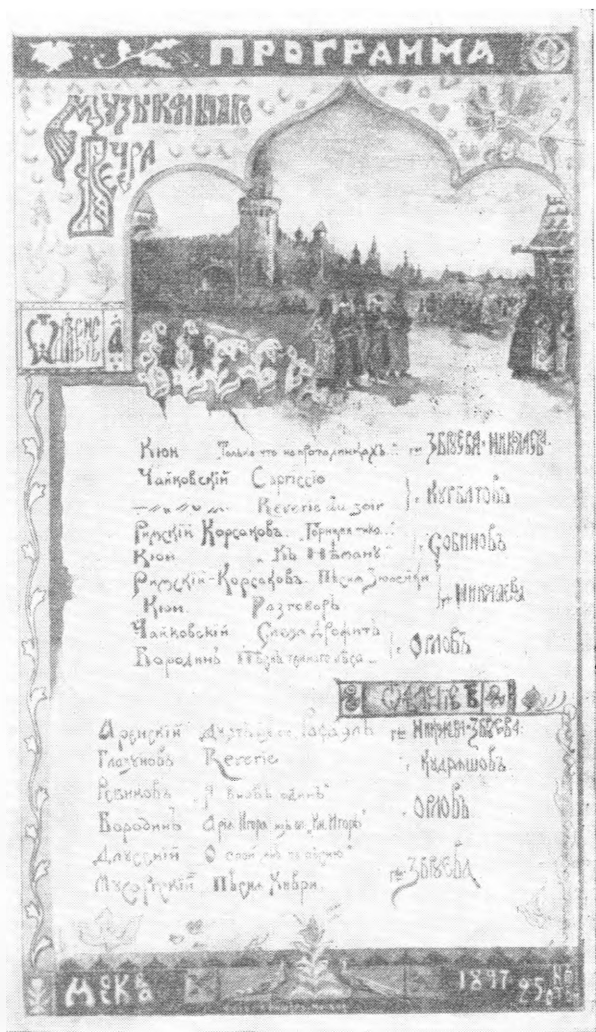 ПРОГРАММА
МУЗЫКАЛЬНАГО
ВЕЧЕРА
Кюи „Только что на проталинкахъ.." г-жи ЗБРУЕВА - НИКЛАЕВА.
Чайковскій Capriccio
Reverie du soir г. КУРБАТОВЪ
Римскій Корсаковъ. „Горними тихо..."
Кюи. „Къ Нѣману" г. СОБИНОВЪ
Римскій-Корсаковъ. Пѣсня Зюлейки
Кюи. Разговоръ г-жа НИКЛАЕВА
Чайковскій Слеза дрожитъ
Бородинъ Пѣснь темнаго лѣса.. г. ОРЛОВЪ
ОТДѢЛЕНІЕ
Аренскій Рафаэль г-жи ЗБРУЕВА.
Глазуновъ Reverie г. КУДРЯШОВЪ.
Ребиковъ „Я вновь одинъ"
Бородинъ Арія Игоря изъ оп. „Кн. Игорь" г. ОРЛОВЪ
О спой
Мусоргскій Пѣсня Хиври. г-жа ЗБРУЕВА
МОСКВА 1897 25